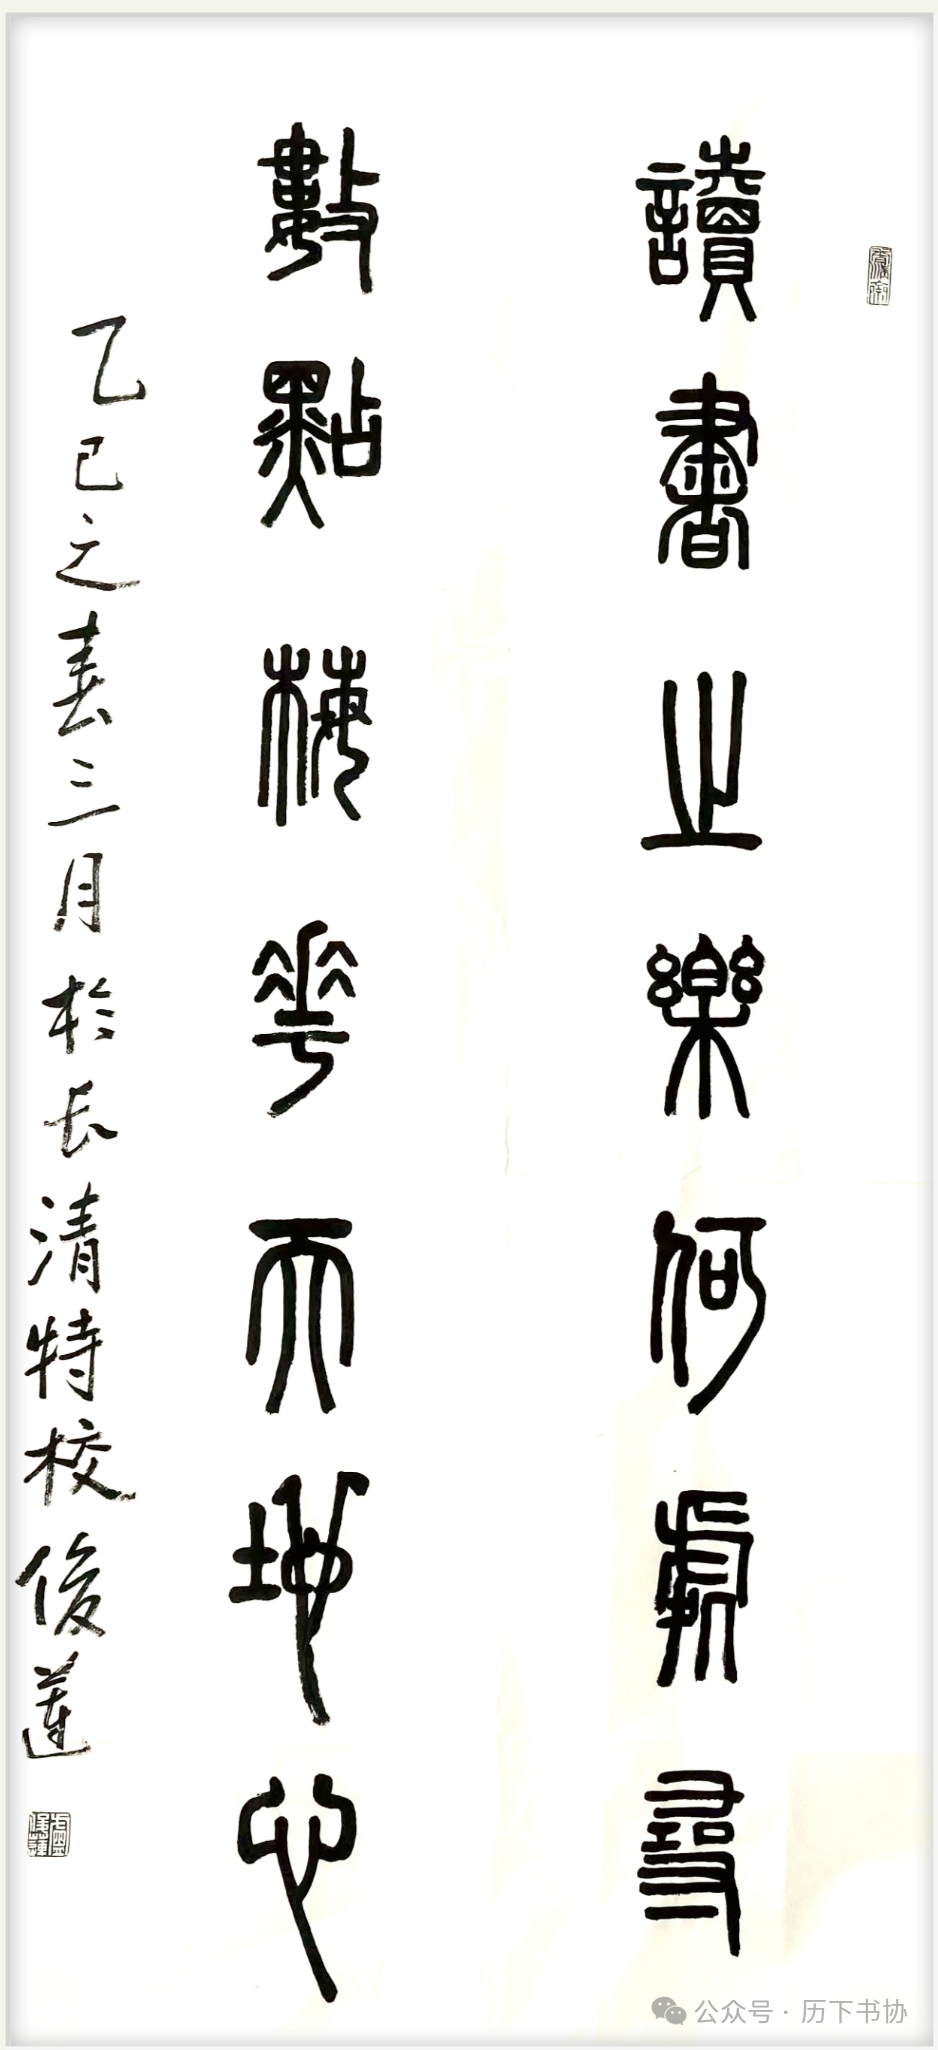 讀書之樂何處尋
數點梅花天地心
乙巳之春三月於长清特校俊蓮
公众号·历下书协